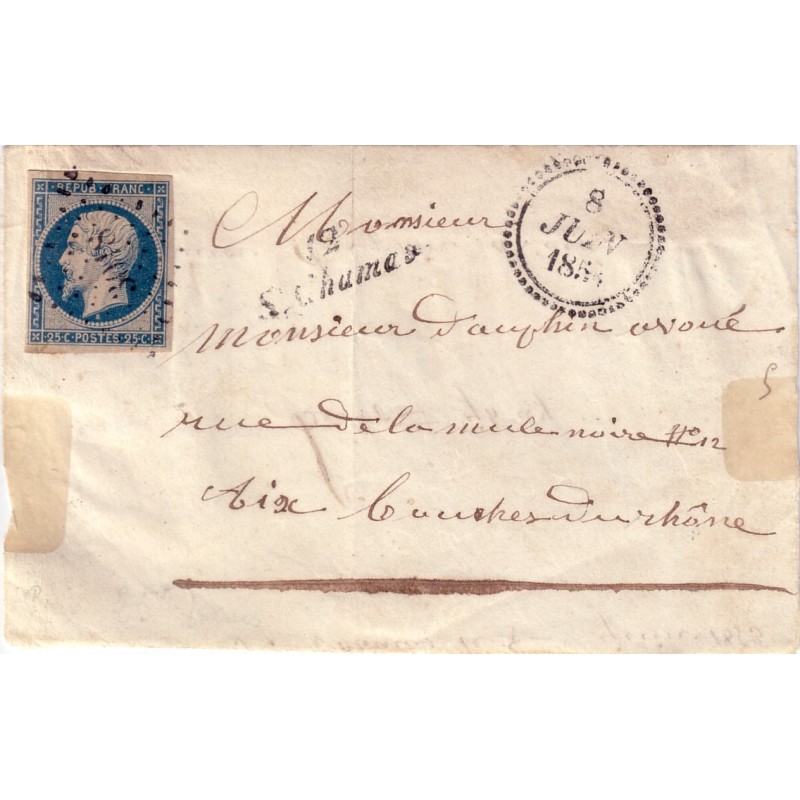 REPUB FRANC
25 C POSTES 25 C
12
St Chamas
8
JUIN
Monsieur
Monsieur Dauphin avoué
rue de la mule noire No 12
Aix Bouches du rhône